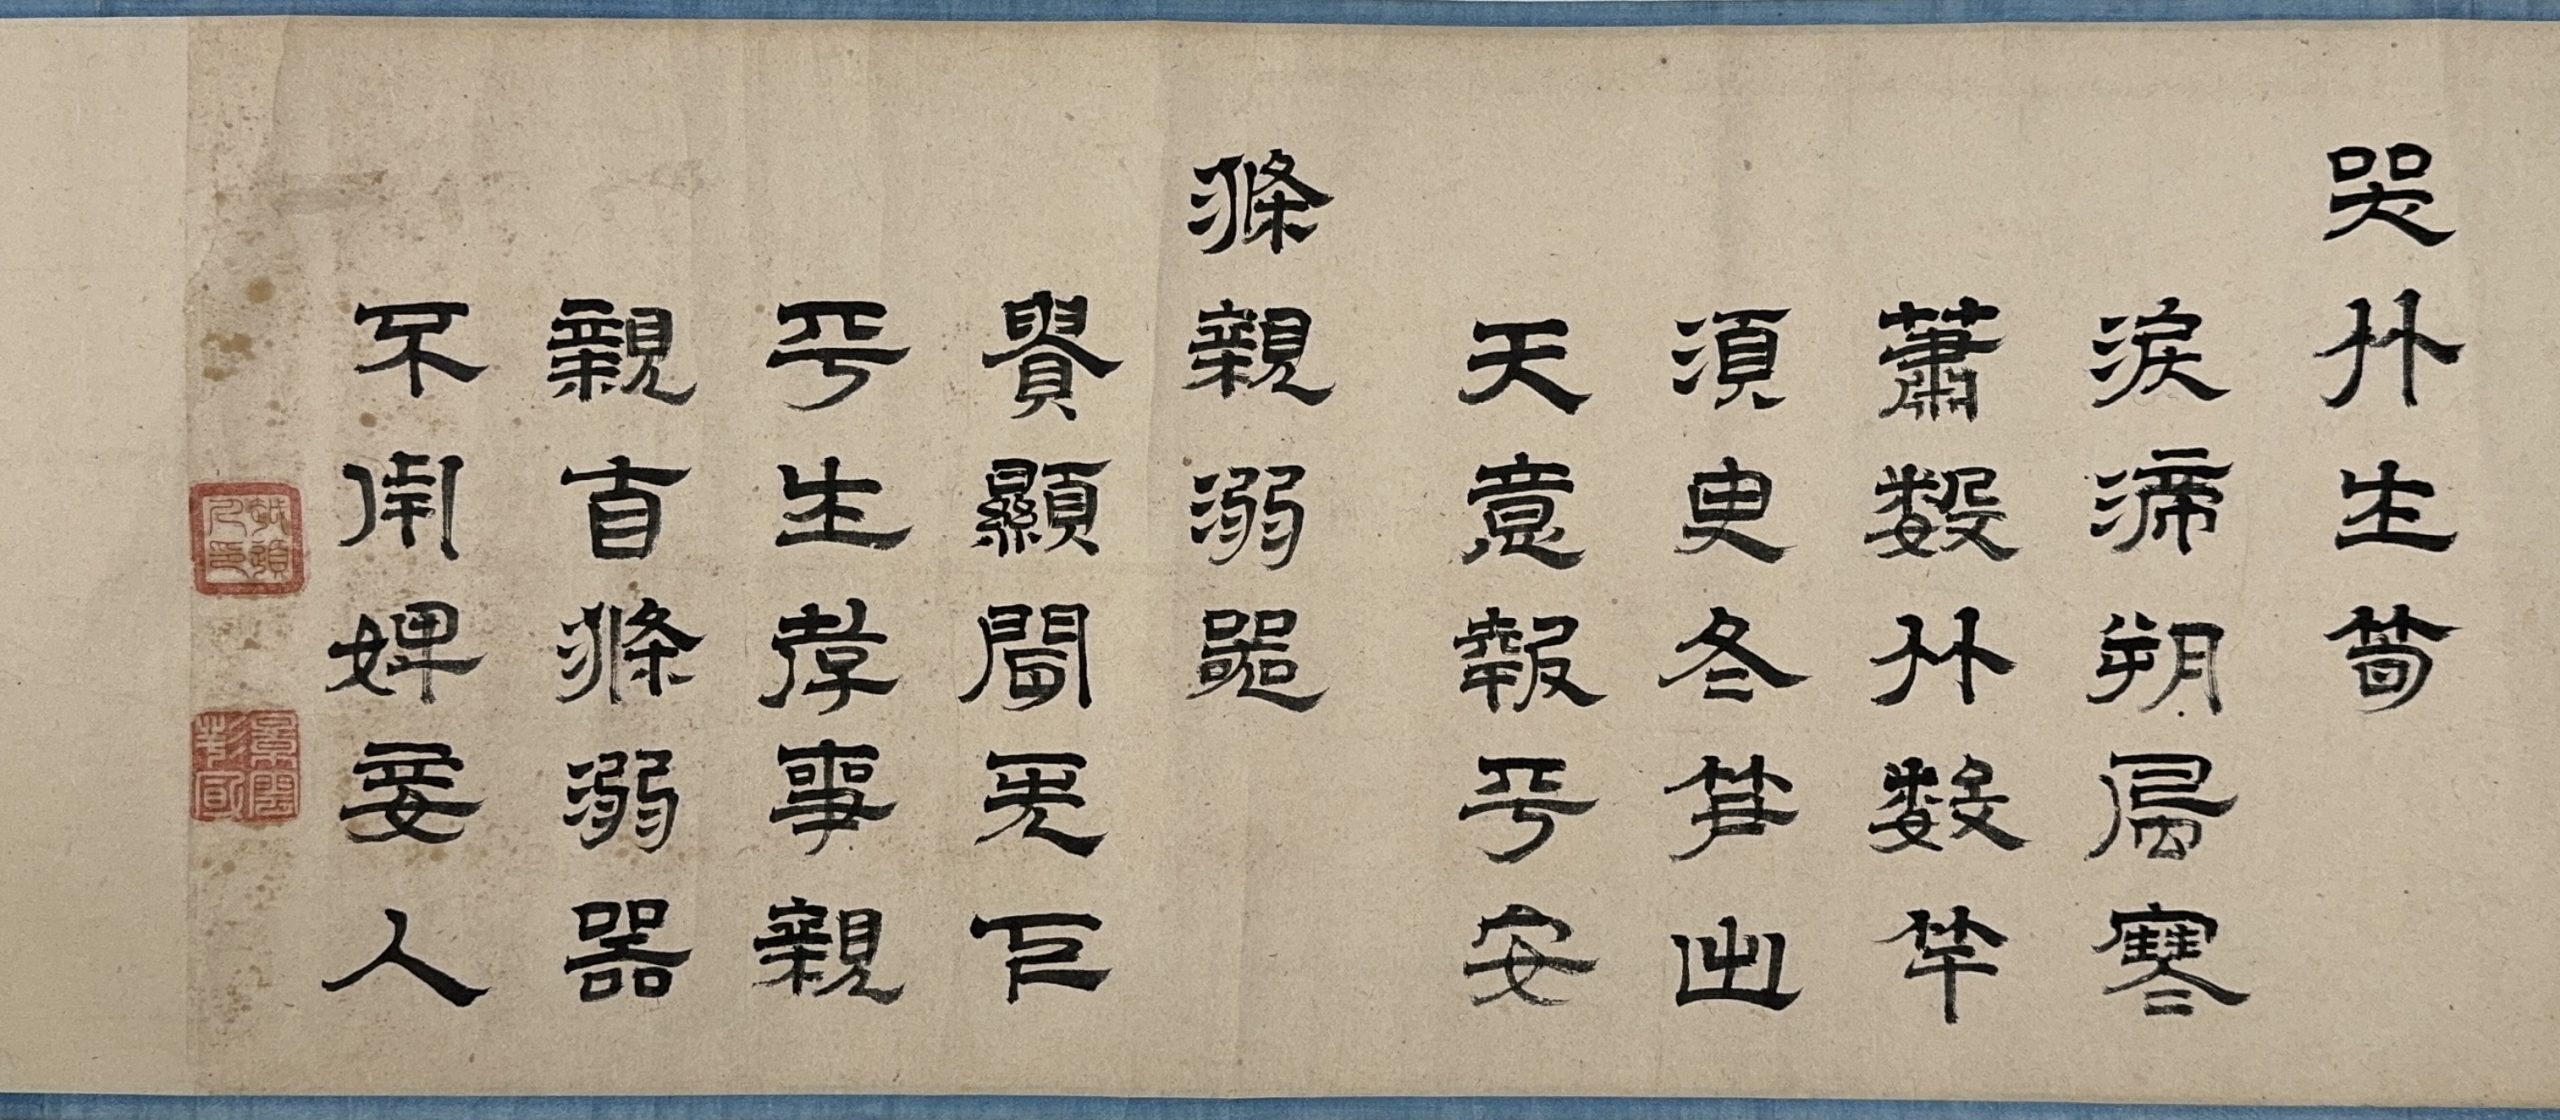 哭竹生筍
淚渧朔風寒
蕭數竹數竿
須臾冬笋出
天意報平安
滌親溺器
貴顯聞天下
平生孝事親
親自滌溺器
不用婢妾人